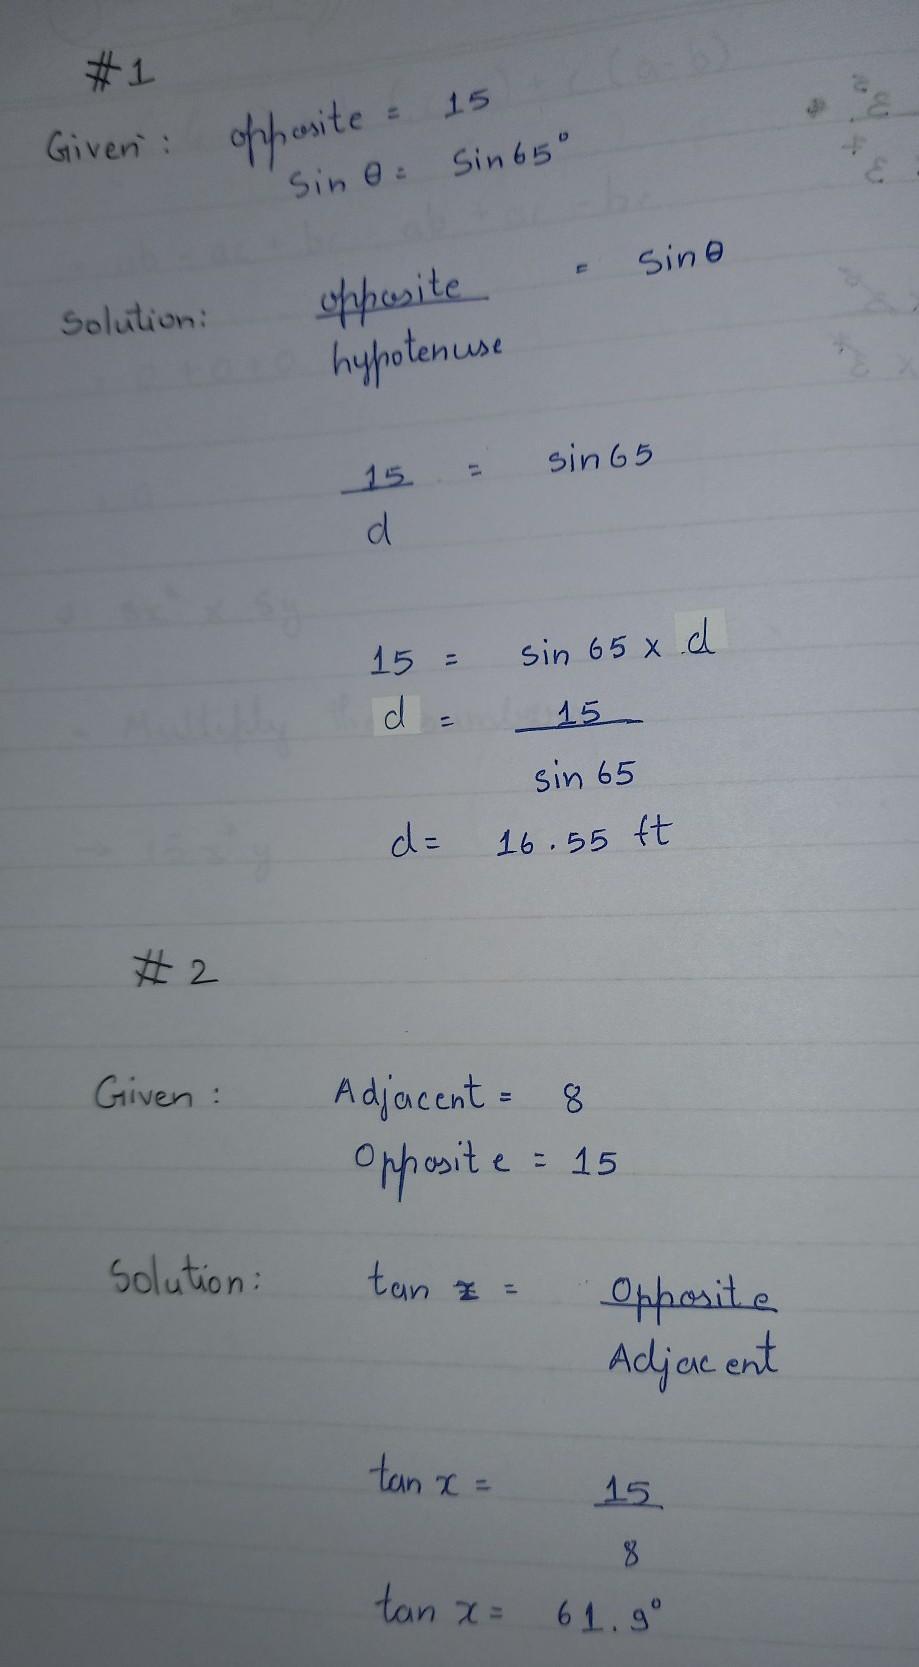 #1
Given: opposite = 15
Sin θ = Sin 65°
Solution: opposite = Sin θ
hypotenuse
15 = sin 65
d
15 = sin 65 x d
d = 15
sin 65
d = 16.55 ft
#2
Given: Adjacent = 8
Opposite = 15
Solution: tan x = Opposite
Adjacent
tan x = 15
8
tan x = 61.9°